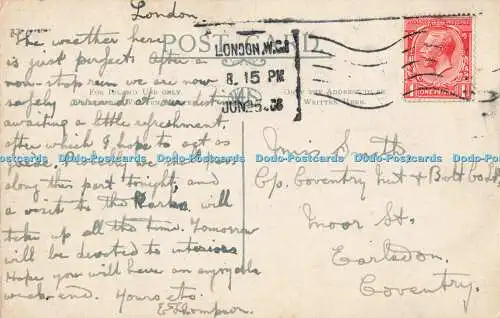 London
The weather here
is just perfect. After a
non-stop run we are now
safely arrived at our destin
awaiting a little refreshment,
after which I hope to act as
guide
along this part tonight, and
a visit to the Parks will
take up all the time. Tomorrow
will be devoted to interiors
Hope you will have an enjoyable
week-end. Yours etc.
E Thompson
POST CARD
FOR INLAND USE ONLY
ONLY THE ADDRESS TO BE
WRITTEN HERE.
LONDON. S.W.
8. 15 PM
JUN 25
ONE PENNY
Miss Smith
C/o. Coventry Nut & Bolt Co Ld
Moor St.
Earlsdon.
Coventry.
Dodo-Postcards Dodo-Postcards Dodo-Postcards Dodo-Postcards Dodo-Postcards Dodo-Postcards